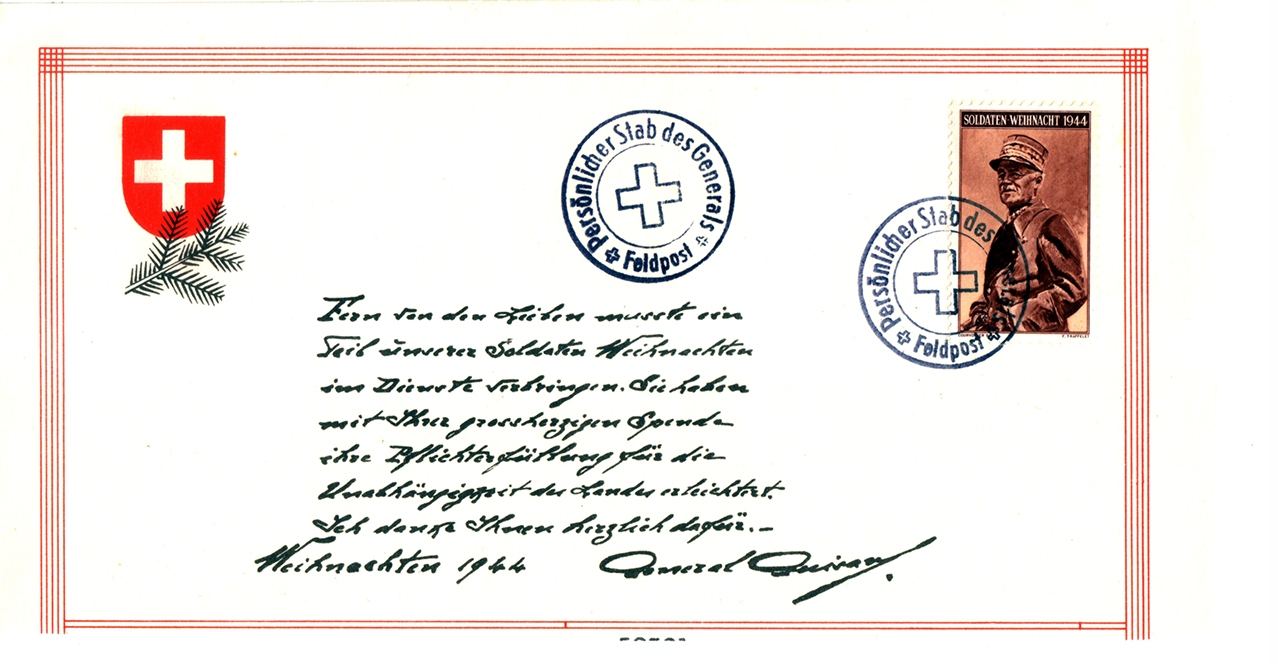 SOLDATEN-WEIHNACHT 1944
Persönlicher Stab des Generals
Feldpost
Persönlicher Stab des Generals
Feldpost
Fern von den Lieben musste ein
Teil unserer Soldaten Weihnachten
im Dienste verbringen. Sie haben
mit Ihrer grossherzigen Spende
ihre Pflichterfüllung für die
Unabhängigkeit des Landes erleichtert.
Ich danke Ihnen herzlich dafür.–
Weihnachten 1944 General Guisan.